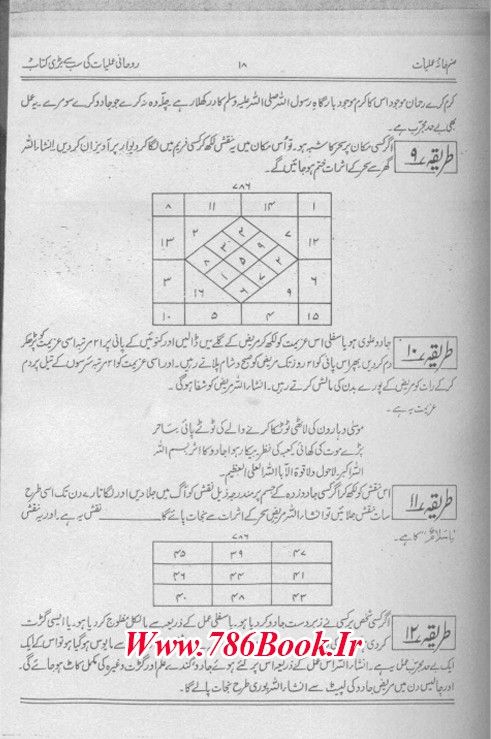 روحانی عملیات کی سب سے بڑی کتاب
۱۸
صنم خانۂ عملیات
کرم کرے رحمان موجود اس کا کرم موجود بارگاہِ رسول اللہ صلی اللہ علیہ وسلم کا در کھلا رہے جلّد وہ نہ کرے جو جادو کرے سو مرے۔ یہ عمل
بھی بے حد مجرّب ہے۔
طریقہ ۹
اگر کسی مکان پر سحر کا شبہ ہو۔ تو اُس مکان میں یہ نقش لکھ کر کسی فریم میں لگا کر دیوار پر آویزاں کر دیں۔ انشاء اللہ
گھر سے سحر کے اثرات ختم ہو جائیں گے۔
۷۸۶
۸ ۱۱ ۱۴ ۱
۱۳ ۲ ۷ ۱۲
۳ ۱۶ ۹ ۶
۱۰ ۵ ۴ ۱۵
طریقہ ۱۰
جادو علوی ہو یا سفلی اس عزیمت کو لکھ کر مریض کے گلے میں ڈالیں اور کنوئیں کے پانی پر ۲۱ مرتبہ اسی عزیمت کو پڑھ کر
دم کر دیں پھر اس پانی کو ۲۱ روز تک مریض کو صبح و شام پلاتے رہیں۔ اور اسی عزیمت کو ۲۱ مرتبہ سرسوں کے تیل پر دم
کر کے رات کو مریض کے پورے بدن کی مالش کرتے رہیں۔ انشاء اللہ مریض کو شفا ہو گی۔
عزیمت یہ ہے۔
موسیٰ و ہارون کی لاٹھی ٹونٹکا کرنے والے کی ٹوٹے پائی
بڑے موت کی کھائی کعبہ کی نظر بیکار ہوا جادو کا اثر بسم اللہ
اللہ اکبر لا حول ولا قوۃ الا باللہ العلی العظیم۔
طریقہ ۱۱
اس نقش کو لکھ کر اگر کسی جادو زدہ کے جسم پر مندرجہ ذیل نقش کو آگ میں جلا دیں اور لگاتار ے دن تک اسی طرح
سات نقش جلائیں تو انشاء اللہ مریض سحر کے اثرات سے نجات پائے گا۔ نقش یہ ہے۔ اور یہ نقش
یا سلامُ کا ہے۔
۷۸۶
۴۵ ۳۹ ۴۷
۴۶ ۴۴ ۴۱
۴۰ ۴۸ ۴۳
طریقہ ۱۲
اگر کسی شخص پر کسی نے زبردست جادو کر دیا ہو۔ یا سفلی عمل کے ذریعہ سے بالکل مفلوج کر دیا ہو۔ یا ایسی گڑت
کر دی سے مایوس ہو گیا ہو تو اس کے لئے ایک
ایک بے حد مجرّب عمل یہ ہے۔ انشاء اللہ اس عمل کے ذریعہ اس پر کئے ہوئے جادو، گندے علم اور گڑت وغیرہ کی مکمل کاٹ ہو جائے گی۔
اور چالیس دن میں مریض جادو کی لپیٹ سے انشاء اللہ پوری طرح نجات پالے گا۔
Www.786Book.Ir